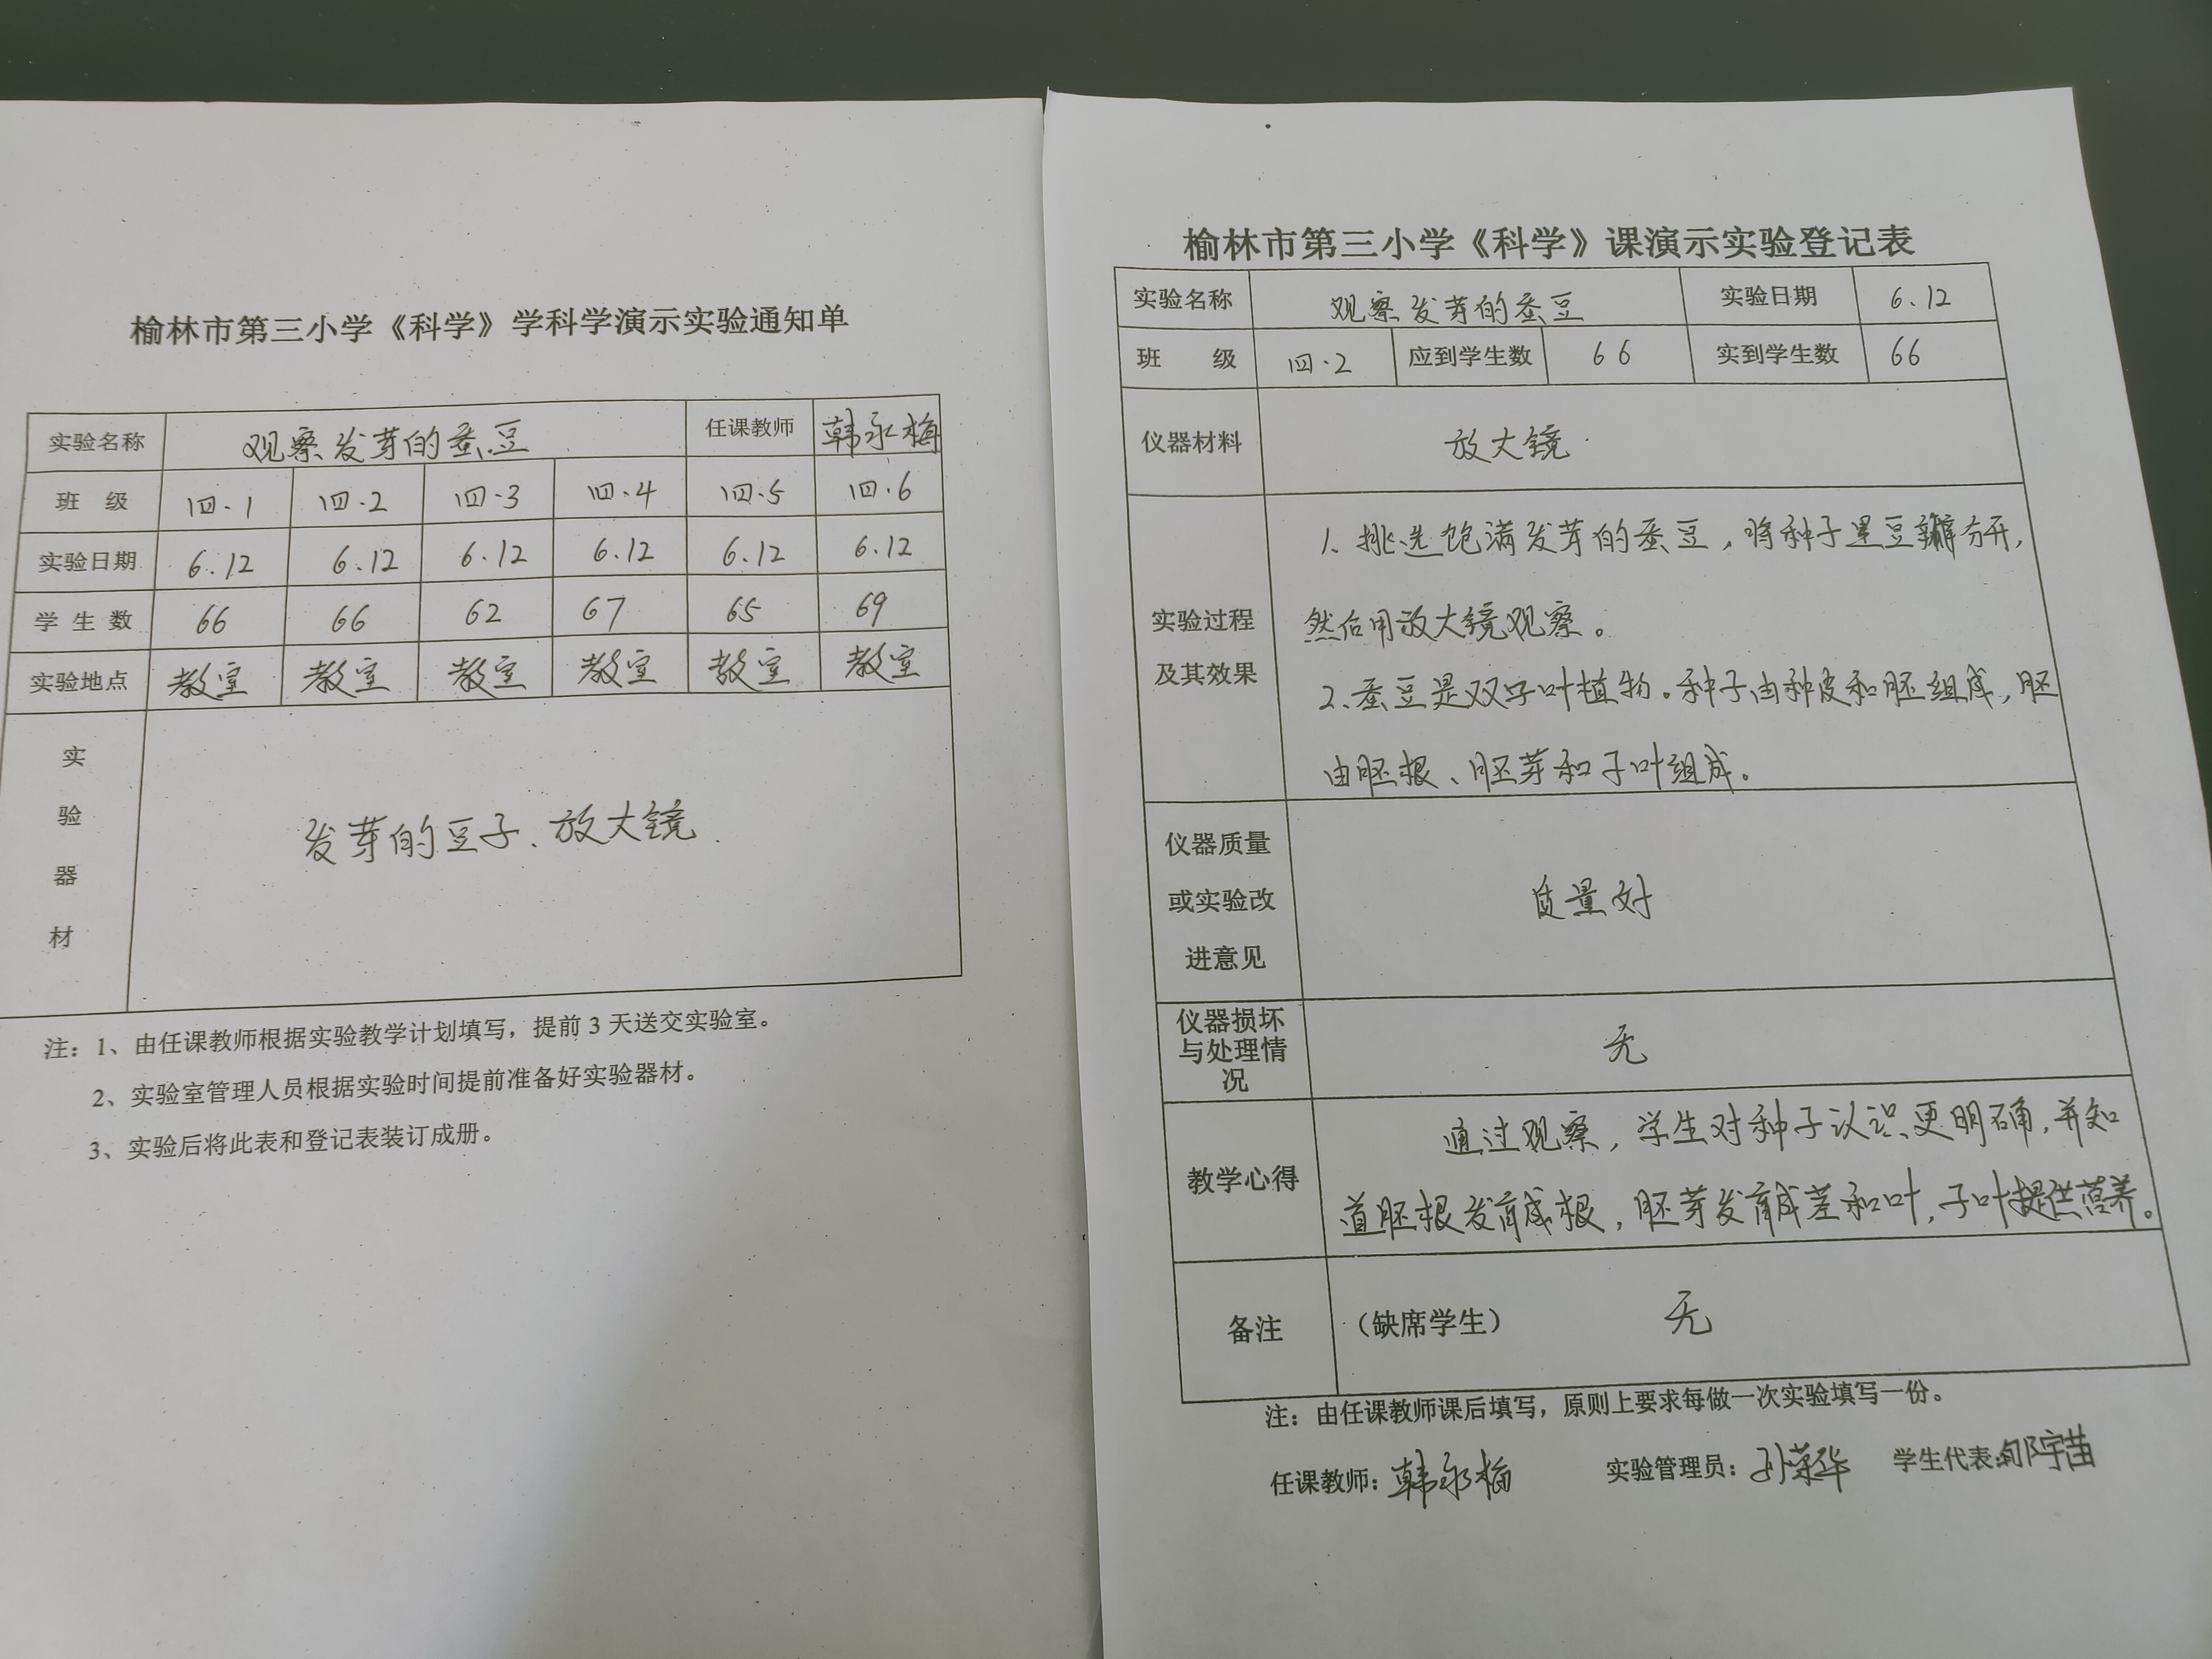 榆林市第三小学《科学》学科学演示实验通知单
实验名称 观察发芽的蚕豆 任课教师 韩永梅
班 级 四.1 四.2 四.3 四.4 四.5 四.6
实验日期 6.12 6.12 6.12 6.12 6.12 6.12
学 生 数 66 66 62 67 65 69
实验地点 教室 教室 教室 教室 教室 教室
实
验
器
材
发芽的豆子、放大镜.
注：1、由任课教师根据实验教学计划填写，提前 3 天送交实验室。
2、实验室管理人员根据实验时间提前准备好实验器材。
3、实验后将此表和登记表装订成册。
榆林市第三小学《科学》课演示实验登记表
实验名称 观察发芽的蚕豆 实验日期 6.12
班 级 四.2 应到学生数 66 实到学生数 66
仪器材料 放大镜.
实验过程
及其效果
1、挑选饱满发芽的蚕豆，将种子豆瓣分开，
然后用放大镜观察。
2、蚕豆是双子叶植物。种子由种皮和胚组成，胚
由胚根、胚芽和子叶组成。
仪器质量
或实验改
进意见
质量好
仪器损坏
与处理情
况
无
教学心得
通过观察，学生对种子认识更明确，并知
道胚根发育成根，胚芽发育成茎和叶，子叶提供营养。
备注 （缺席学生） 无
注：由任课教师课后填写，原则上要求每做一次实验填写一份。
任课教师：韩永梅 实验管理员：孙荣华 学生代表：